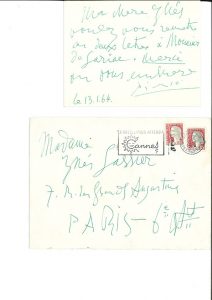 Ma chère Ynés
voulez vous remettre
ces deux lettres à Monsieur
de Sariac. Merci
on vous embrasse
Picasso
le 13.1.64.
Cannes
Madame
Ynès Sassier
7. R. des Grands Augustins
PARIS - 6e